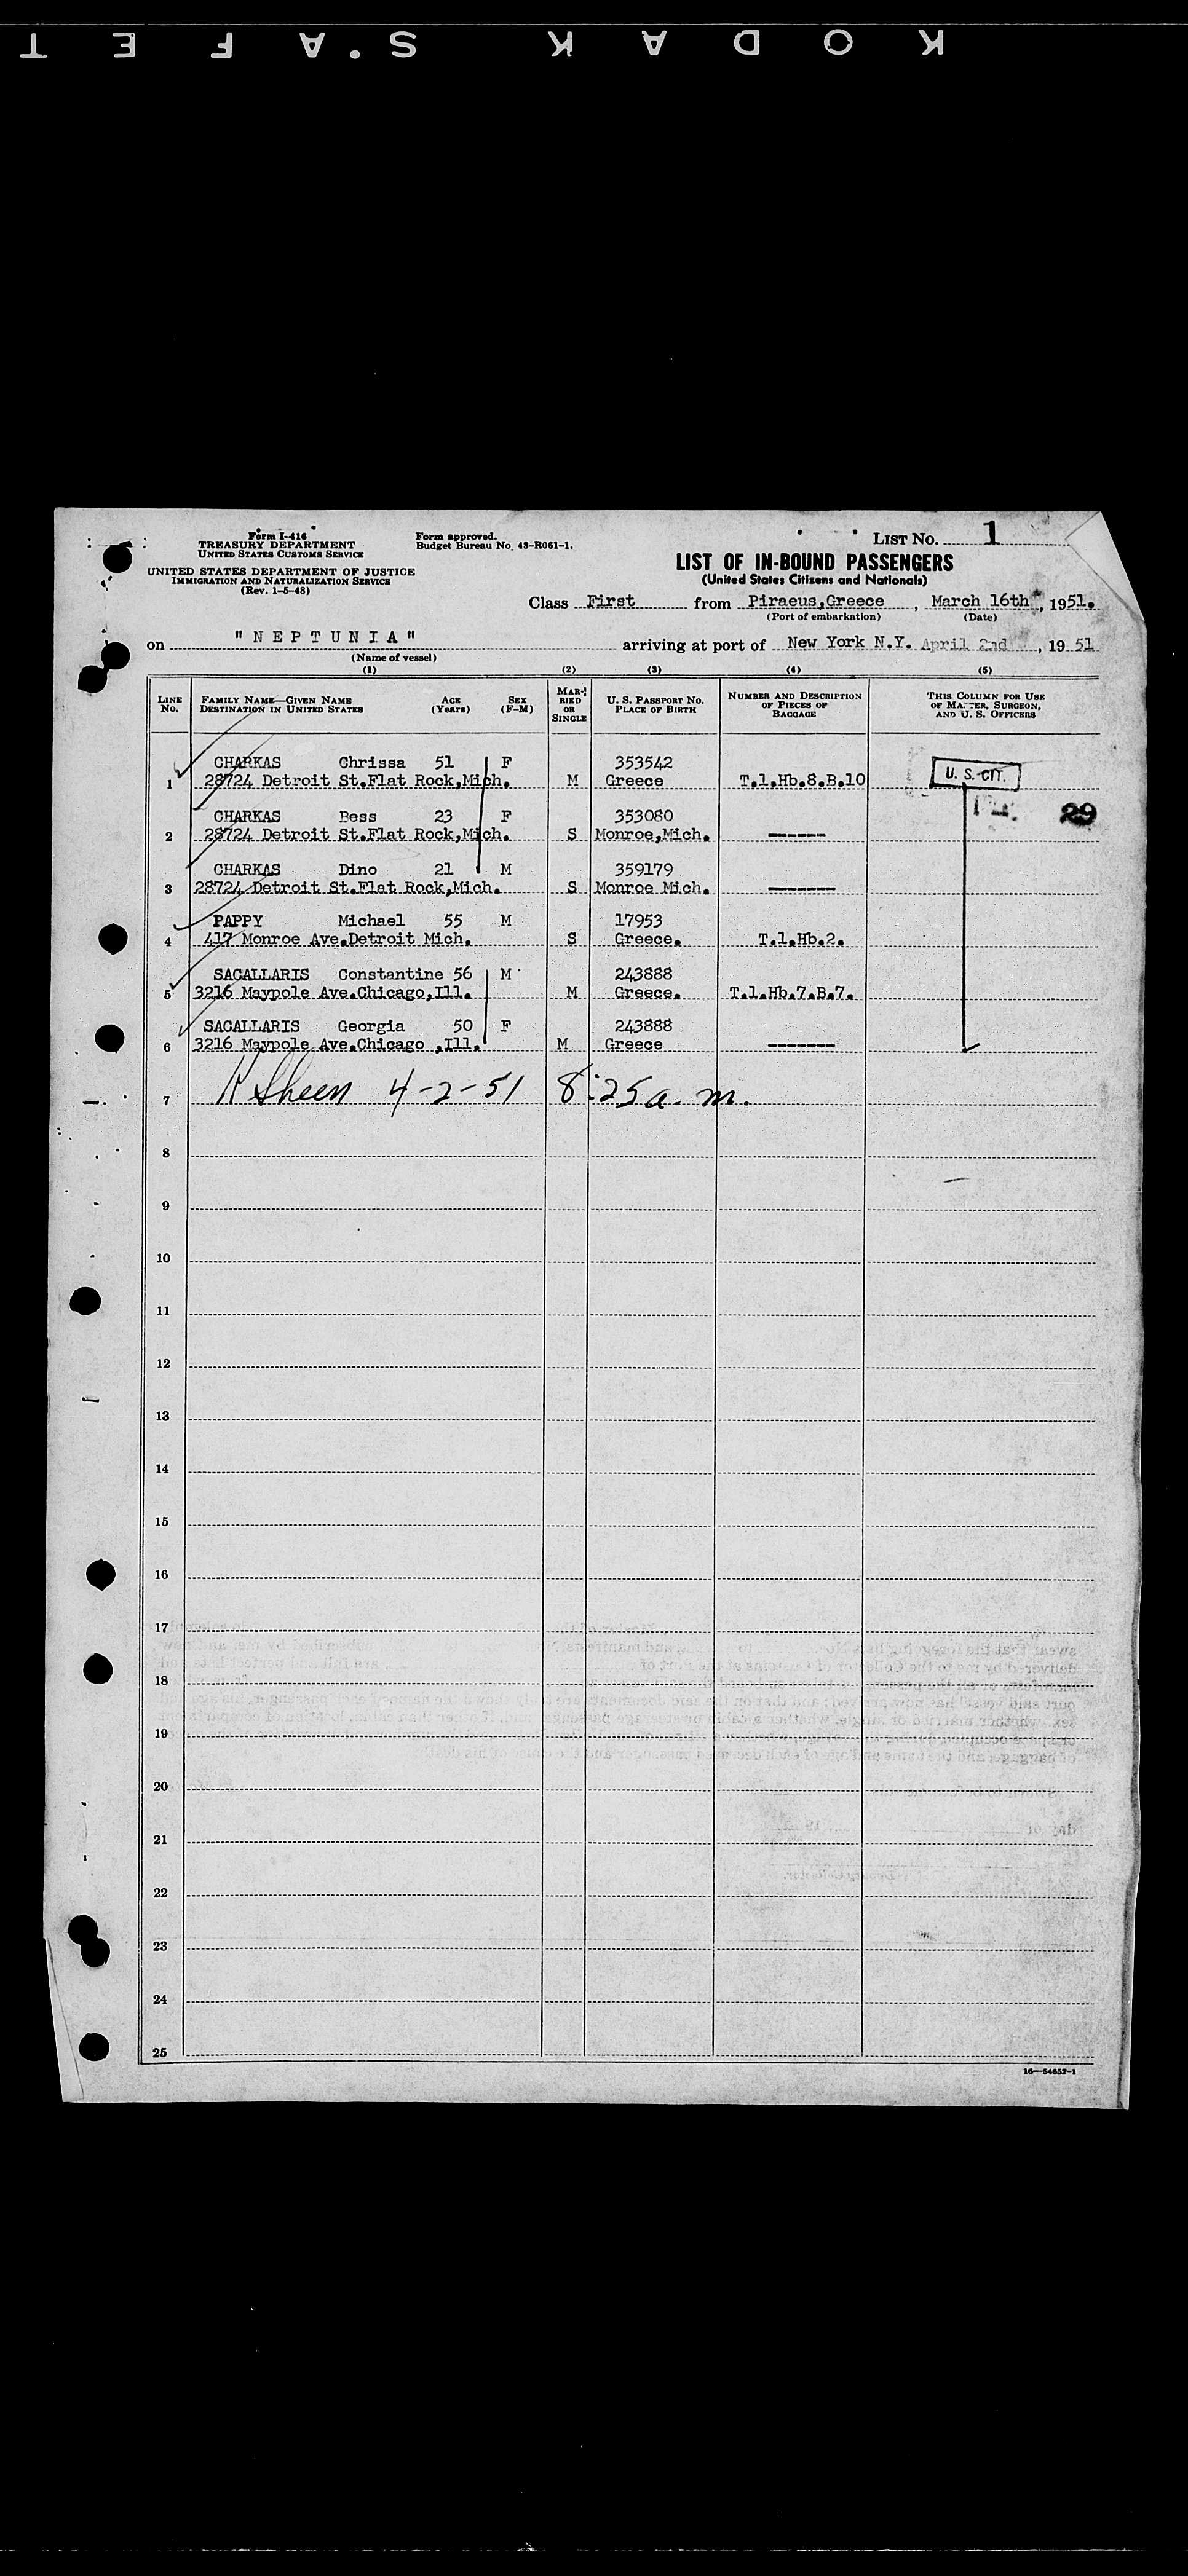 KODAK S.AFET
Form I-416
TREASURY DEPARTMENT
UNITED STATES CUSTOMS SERVICE
UNITED STATES DEPARTMENT OF JUSTICE
IMMIGRATION AND NATURALIZATION SERVICE
(Rev. 1-5-48)
Form approved.
Budget Bureau No. 43-R061-1.
LIST NO. 1
LIST OF IN-BOUND PASSENGERS
(United States Citizens and Nationals)
Class First from Piraeus,Greece, March 16th, 1951.
(Port of embarkation) (Date)
on "NEPTUNIA" arriving at port of New York N.Y. April 2nd, 1951
(Name of vessel)
(1) (2) (3) (4) (5)
LINE NO. FAMILY NAME—GIVEN NAME DESTINATION IN UNITED STATES AGE (Years) SEX (F-M) MARRIED OR SINGLE U. S. PASSPORT NO. PLACE OF BIRTH NUMBER AND DESCRIPTION OF PIECES OF BAGGAGE THIS COLUMN FOR USE OF MASTER, SURGEON, AND U. S. OFFICERS
CHARKAS Chrissa 51 F 353542
1 28724 Detroit St.Flat Rock,Mich. M Greece T.1,Hb.8.B.10 U. S. CIT.
CHARKAS Bess 23 F 353080 29
2 28724 Detroit St.Flat Rock,Mich. S Monroe,Mich. -----
CHARKAS Dino 21 M 359179
3 28724 Detroit St.Flat Rock,Mich. S Monroe Mich. ------
PAPPY Michael 55 M 17953
4 417 Monroe Ave.Detroit Mich. S Greece. T.1,Hb.2.
SACALLARIS Constantine 56 M 243888
5 3216 Maypole Ave.Chicago,Ill. M Greece. T.1.Hb.7.B.7.
SACALLARIS Georgia 50 F 243888
6 3216 Maypole Ave.Chicago ,Ill. M Greece ------
7 H Sheen 4-2-51 8:25 a.m.
8
9
10
11
12
13
14
15
16
17
18
19
20
21
22
23
24
25
16—54652-1